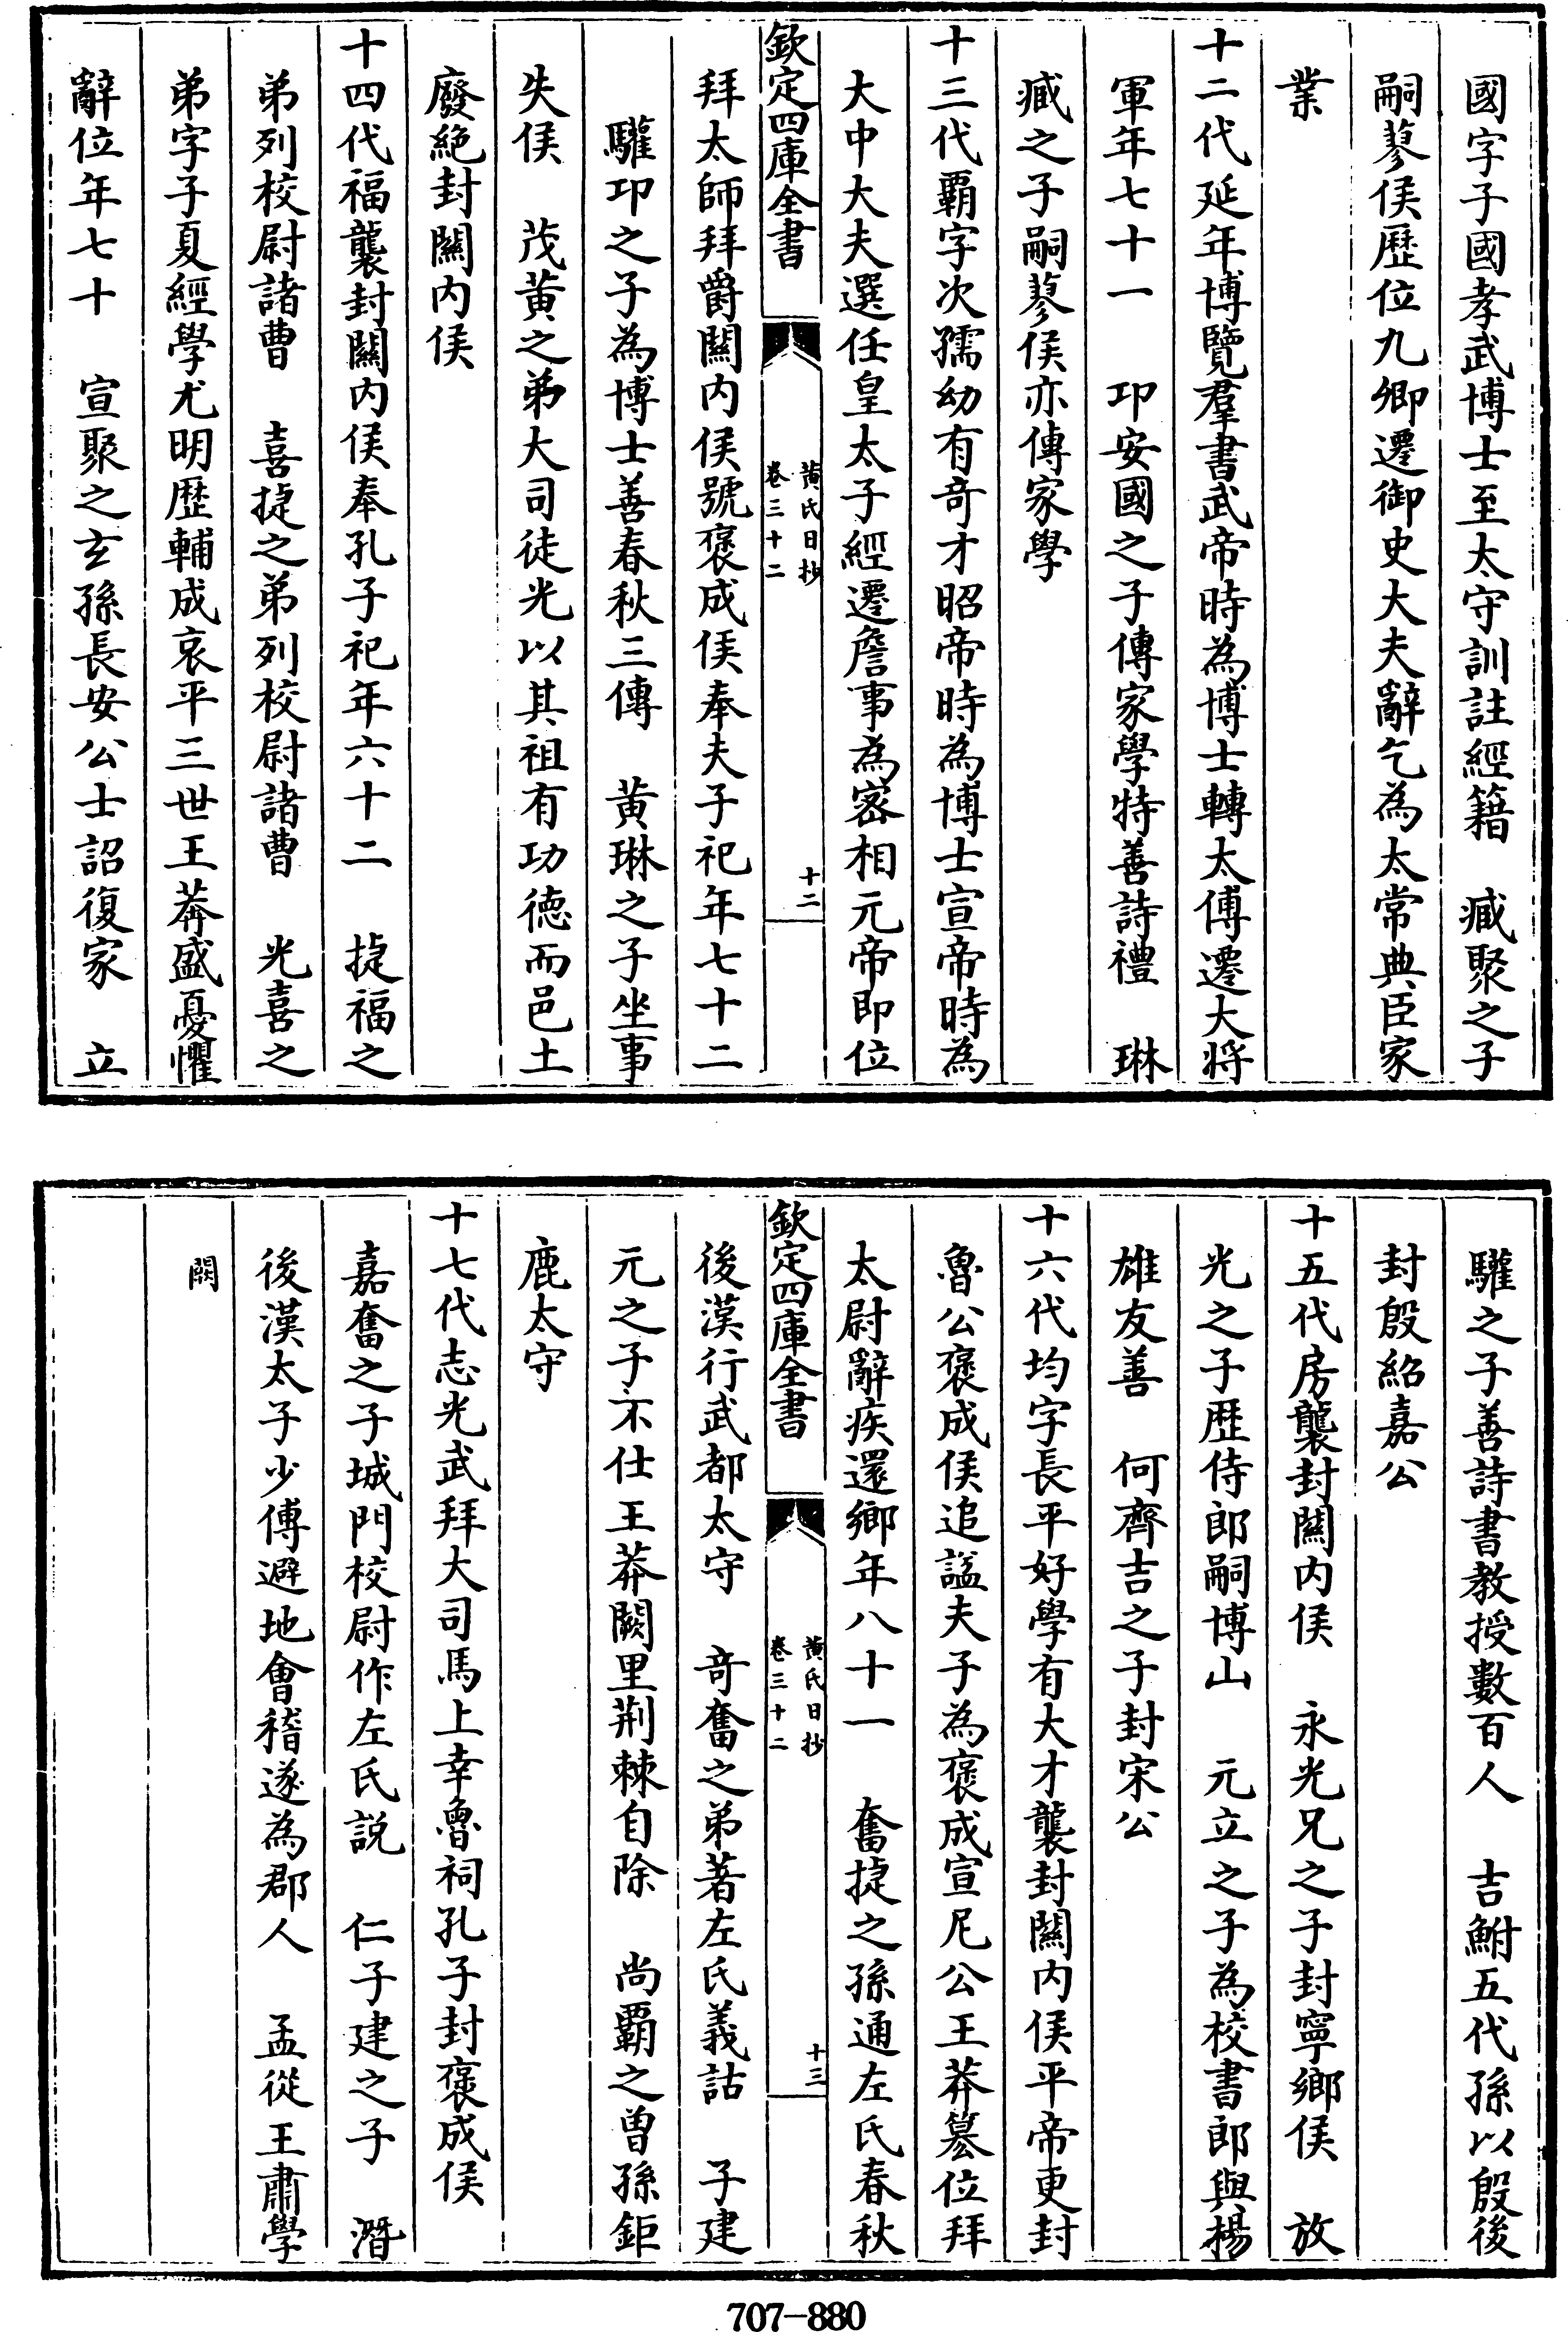 國字子國孝武博士至太守訓註經籍　臧聚之子
嗣蓼侯歴位九卿遷御史大夫辭乞為太常典臣家
業
十二代延年博覽羣書武帝時為博士轉太傅遷大將
軍年七十一　卭安國之子傳家學特善詩禮　琳
臧之子嗣蓼侯亦傳家學
十三代霸字次孺幼有奇才昭帝時為博士宣帝時為
大中大夫選任皇太子經遷詹事為宻相元帝即位
欽定四庫全書
黄氏日抄
卷三十二
十二
拜太師拜爵闗内侯號褒成侯奉夫子祀年七十二
驩卭之子為博士善春秋三傳　黄琳之子坐事
失侯　茂黄之弟大司徒光以其祖有功徳而邑土
廢絶封闗内侯
十四代福襲封闗内侯奉孔子祀年六十二　捷福之
弟列校尉諸曹　喜捷之弟列校尉諸曹　光喜之
弟字子夏經學尤明歴輔成哀平三世王莽盛憂懼
辭位年七十　宣聚之玄孫長安公士詔復家　立
驩之子善詩書教授數百人　吉鮒五代孫以殷後
封殷紹嘉公
十五代房襲封闗内侯　永光兄之子封寧鄉侯　放
光之子歴侍郎嗣博山　元立之子為校書郎與揚
雄友善　何齊吉之子封宋公
十六代均字長平好學有大才襲封闗内侯平帝更封
魯公褒成侯追諡夫子為褒成宣尼公王莽簒位拜
太尉辭疾還鄉年八十一　奮捷之孫通左氏春秋
欽定四庫全書
黄氏日抄
卷三十二
十三
後漢行武都太守　奇奮之弟著左氏義詁　子建
元之子不仕王莽闕里荆棘自除　尚霸之曾孫鉅
鹿太守
十七代志光武拜大司馬上幸魯祠孔子封褒成侯
嘉奮之子城門校尉作左氏説　仁子建之子　潛
後漢太子少傅避地會稽遂為郡人　孟從王肅學
闕
707-880